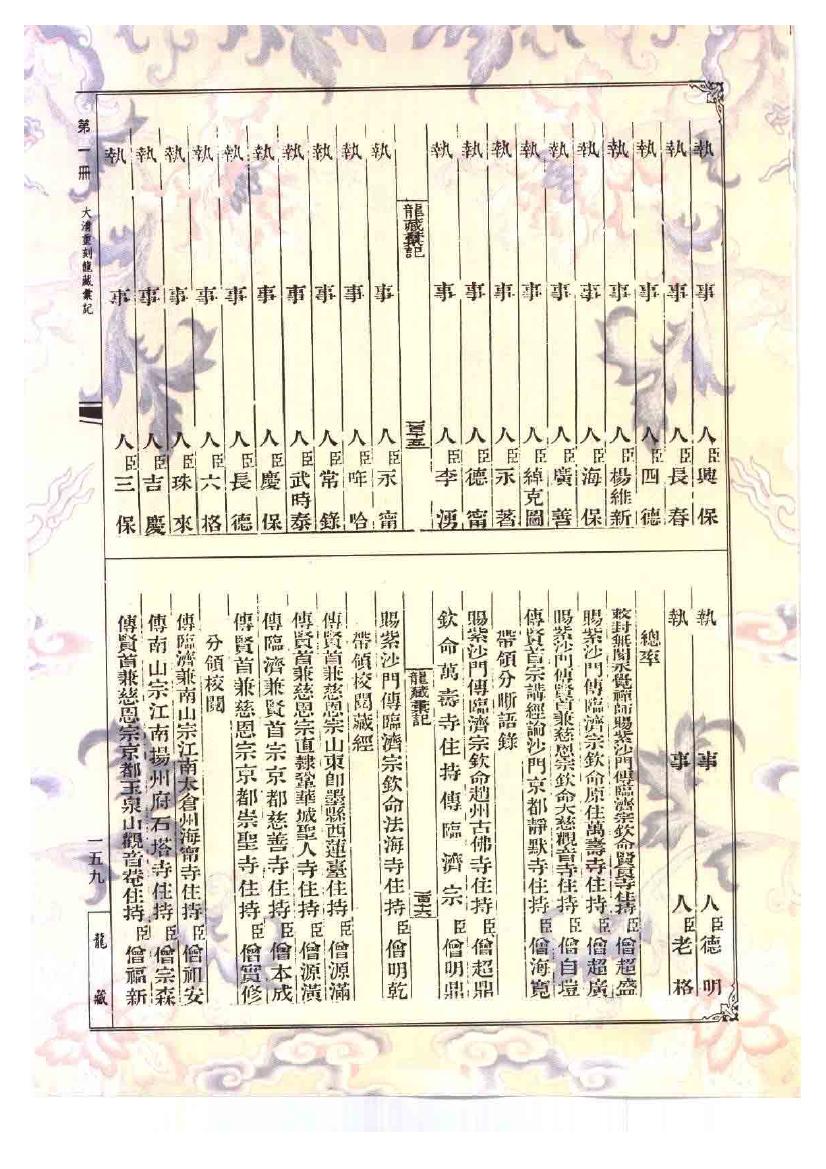 執事人臣興保
執事人臣長春
執事人臣四德
執事人臣楊維新
執事人臣海保
執事人臣廣善
執事人臣綽克圖
執事人臣永蓍
執事人臣德甯
執事人臣李湧
龍藏彙記
百十五
執事人臣永甯
執事人臣哈
執事人臣常錄
執事人臣武時泰
執事人臣慶保
執事人臣長德
執事人臣六格
執事人臣珠來
執事人臣吉慶
執事人臣三保
執事人臣德明
執事人臣老格
總率
敕封無閡永覺禪師賜紫沙門傳臨濟宗欽命賢良寺住持臣僧超盛
賜紫沙門傳臨濟宗欽命原住萬壽寺住持臣僧超廣
賜紫沙門傳賢首兼慈恩宗欽命大慈觀音寺住持臣僧自塏
傳賢首宗講經論沙門京都靜默寺住持臣僧海寬
帶領分晰語錄
賜紫沙門傳臨濟宗欽命趙州古佛寺住持臣僧超鼎
欽命萬壽寺住持傳臨濟宗臣僧明鼎
龍藏彙記
百十六
賜紫沙門傳臨濟宗欽命法海寺住持臣僧明乾
帶領校閱藏經
傳賢首兼慈恩宗山東即墨縣西蓮臺住持臣僧源滿
傳賢首兼慈恩宗直隸鞏華城聖人寺住持臣僧源潢
傳臨濟兼賢首宗京都慈善寺住持臣僧本成
傳賢首兼慈恩宗京都崇聖寺住持臣僧實修
分領校閱
傳臨濟兼南山宗江南太倉州海甯寺住持臣僧祖安
傳南山宗江南揚州府石塔寺住持臣僧宗森
傳賢首兼慈恩宗京都玉泉山觀音菴住持臣僧福新
第一冊
大清重刻龍藏彙記
一五九
龍藏